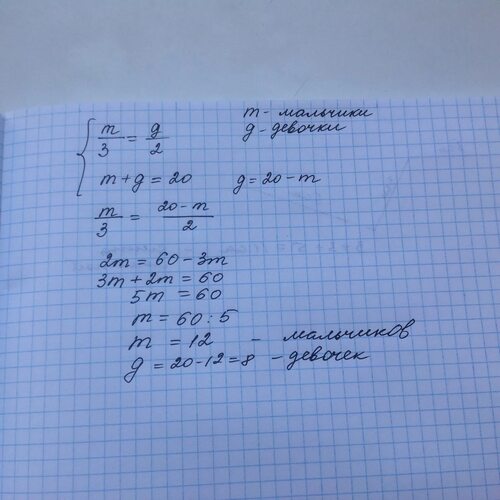 m - мальчики
m/3 = g/2 g - девочки
m + g = 20 g = 20 - m
m/3 = (20 - m)/2
2m = 60 - 3m
3m + 2m = 60
5m = 60
m = 60 : 5
m = 12 - мальчиков
g = 20 - 12 = 8 - девочек